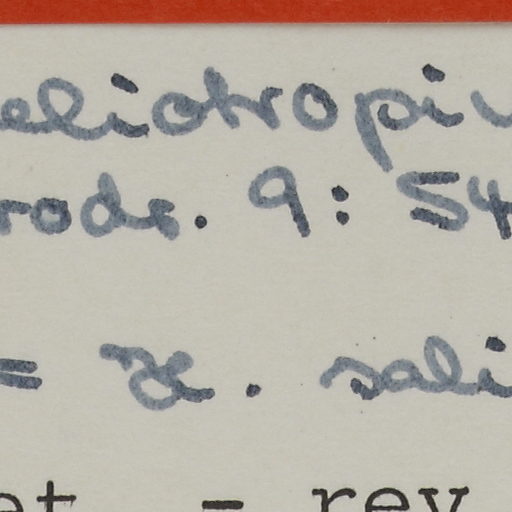 eliotropiu
rods. 9: 54
= H. sali
et. - rev